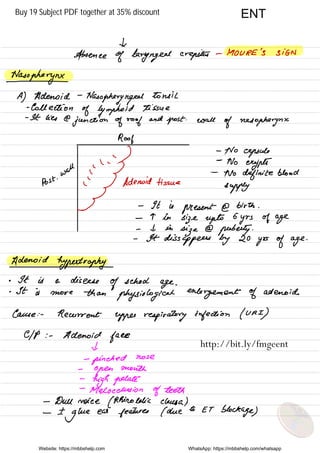 Buy 19 Subject PDF together at 35% discount
ENT
↓
Absence of laryngeal crepitus - MOURE'S SIGN
Nasopharynx
A) Adenoid - Nasopharyngeal Tonsil
- Collection of lymphoid tissue
- It lies @ junction of roof and post. wall of nasopharynx
Roof
Post. wall
Adenoid tissue
- No capsule
- No crypts
- No definite blood supply
- It is present @ birth.
- ↑ in size upto 6 yrs of age
- ↓ in size @ puberty.
- It disappears by 20 yrs of age.
Adenoid hypertrophy
• It is a disease of school age.
• It is more than physiological enlargement of adenoid.
Cause:- Recurrent upper respiratory infection (URI)
C/P :- Adenoid face
http://bit.ly/fmgeent
↓
- pinched nose
- open mouth
- high palate
- Malocclusion of teeth
- Dull voice (Rhinolalia clausa)
- ± glue ear features (due to ET blockage)
Website: https://mbbshelp.com
WhatsApp: https://mbbshelp.com/whatsapp